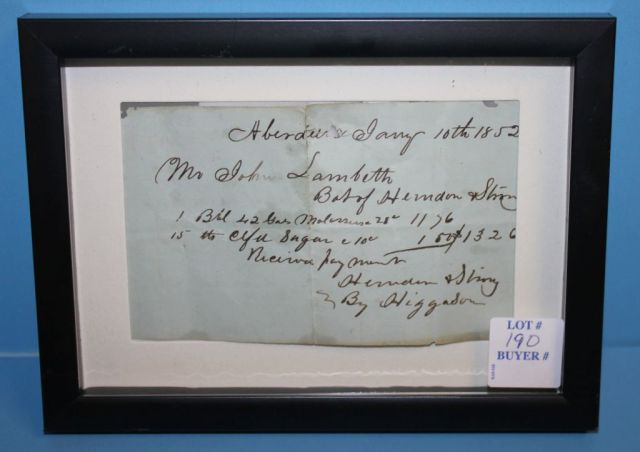 Aberdeen Jany 10th 1852
Mr John Lambeth
Bot of Herndon & Strong
1 Bbl 42 Gals Molasses 28c 11 76
15 lb Clfd Sugar c 10c 1 50 $13 26
Received payment
Herndon & Strong
By Higgason
LOT #
190
BUYER #